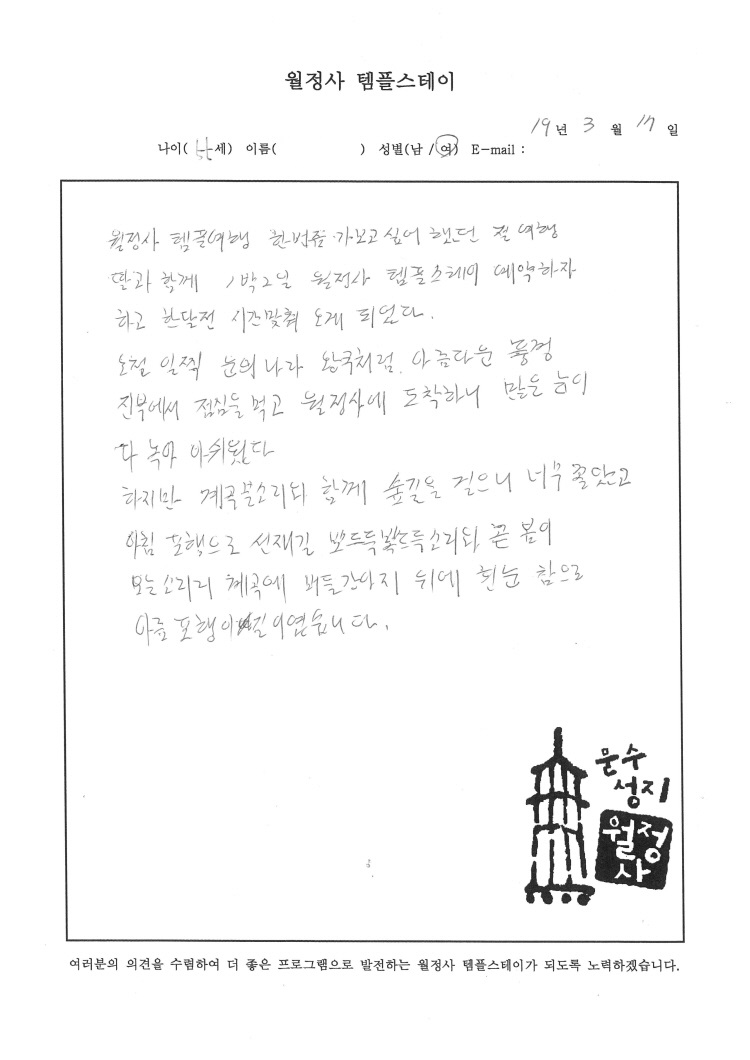 월정사 템플스테이
19년 3월 17일
나이( 세) 이름( ) 성별(남 / 여) E-mail :
월정사 템플여행 한번쯤 가보고 싶어 했던 절 여행
딸과 함께 1박2일 월정사 템플스테이 예약하자
하고 한달전 시간맞춰 오게 되었다.
오철 일찍 눈의 나라 왕국처럼. 아름다운 풍경
진부에서 점심을 먹고 월정사에 도착하니 많은 눈이
다 녹아 아쉬웠다
하지만 계곡물소리와 함께 숲길을 걸으니 너무 좋았고
아침 포행으로 선재길 뽀드득뽀드득소리와 곧 봄이
오는소리리 계곡에 버들강아지 위에 흰눈 참으로
포행 길이였습니다.
문수
성지
월정
사
여러분의 의견을 수렴하여 더 좋은 프로그램으로 발전하는 월정사 템플스테이가 되도록 노력하겠습니다.